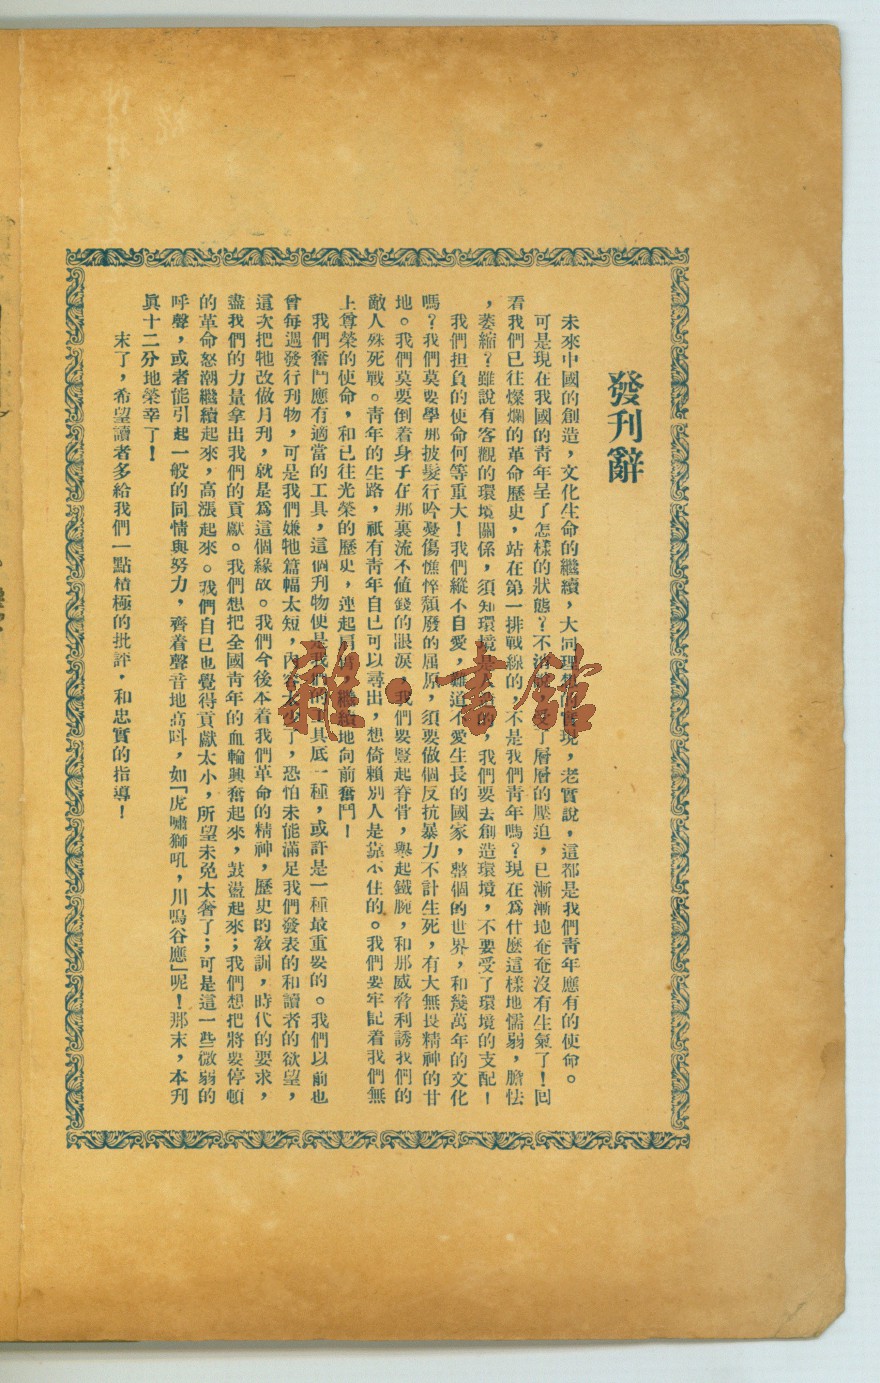 發刊辭
未來中國的創造，文化生命的繼續，大同理想的實現，老實說，這都是我們青年應有的使命。
可是現在我國的青年呈了怎樣的狀態？不消說，受了層層的壓迫，已漸漸地奄奄沒有生氣了！回
看我們已往燦爛的革命歷史，站在第一排戰線的，不是我們青年嗎？現在爲什麼這樣地懦弱，膽怯
，萎縮？雖說有客觀的環境關係，須知環境是人造的，我們要去創造環境，不要受了環境的支配！
我們担負的使命何等重大！我們縱不自愛，難道不愛生長的國家，整個的世界，和幾萬年的文化
嗎？我們莫要學那披髮行吟憂傷憔悴頹廢的屈原，須要做個反抗暴力不計生死，有大無畏精神的甘
地。我們莫要倒着身子在那裏流不值錢的眼淚，我們要豎起脊骨，舉起鐵腕，和那威脅利誘我們的
敵人殊死戰。靑年的生路，祇有青年自已可以尋出，想倚賴別人是靠不住的。我們要牢記着我們無
上尊榮的使命，和已往光榮的歷史，連起肩向，繼續地向前奮鬥！
我們奮鬥應有適當的工具，這個刊物便是我們的工具底一種，或許是一種最重要的。我們以前也
曾每週發行刊物，可是我們嫌牠篇幅太短，內容太少了，恐怕未能滿足我們發表的和讀者的欲望，
這次把牠改做月刊，就是爲這個緣故。我們今後本着我們革命的精神，歷史的敎訓，時代的要求，
盡我們的力量拿出我們的貢獻。我們想把全國青年的血輪興奮起來，鼓盪起來；我們想把將要停頓
的革命怒潮繼續起來，高漲起來。我們自已也覺得貢獻太小，所望未免太奢了；可是這一些微弱的
呼聲，或者能引起一般的同情與努力，齊着聲音地高呌，如「虎嘯獅吼，川鳴谷應」呢！那末，本刊
眞十二分地榮幸了！
末了，希望讀者多給我們一點積極的批評，和忠實的指導！
雜·書館